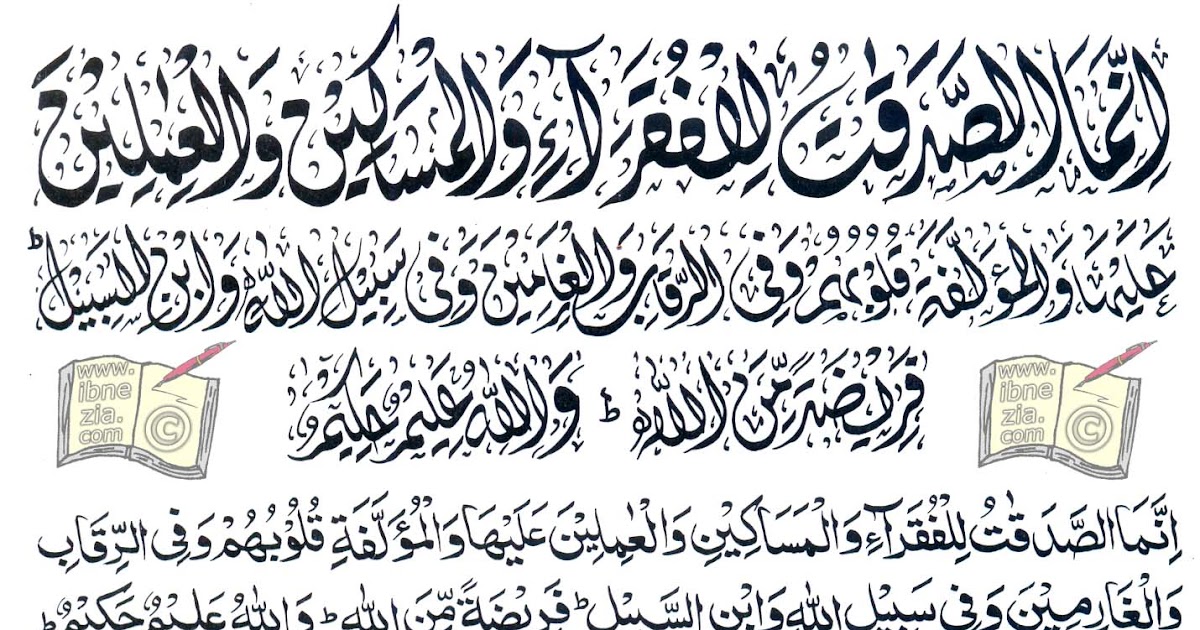 اِنَّمَا الصَّدَقٰتُ لِلْفُقَرَآءِ وَالْمَسَاكِيْنِ وَالْعٰمِلِيْنَ
عَلَيْهَا وَالْمُؤَلَّفَةِ قُلُوْبُهُمْ وَفِی الرِّقَابِ وَالْغَارِمِيْنَ وَفِیْ سَبِيْلِ اللّٰهِ وَابْنِ السَّبِيْلِ ؕ
فَرِيْضَةً مِّنَ اللّٰهِ ؕ وَاللّٰهُ عَلِيْمٌ حَكِيْمٌ
www.
ibne
zia.
com
©
www.
ibne
zia.
com
©
اِنَّمَا الصَّدَقٰتُ لِلْفُقَرَآءِ وَالْمَسَاكِيْنِ وَالْعٰمِلِيْنَ عَلَيْهَا وَالْمُؤَلَّفَةِ قُلُوْبُهُمْ وَفِی الرِّقَابِ
وَالْغَارِمِيْنَ وَفِیْ سَبِيْلِ اللّٰهِ وَابْنِ السَّبِيْلِ ؕ فَرِيْضَةً مِّنَ اللّٰهِ ؕ وَاللّٰهُ عَلِيْمٌ حَكِيْمٌ ؕ